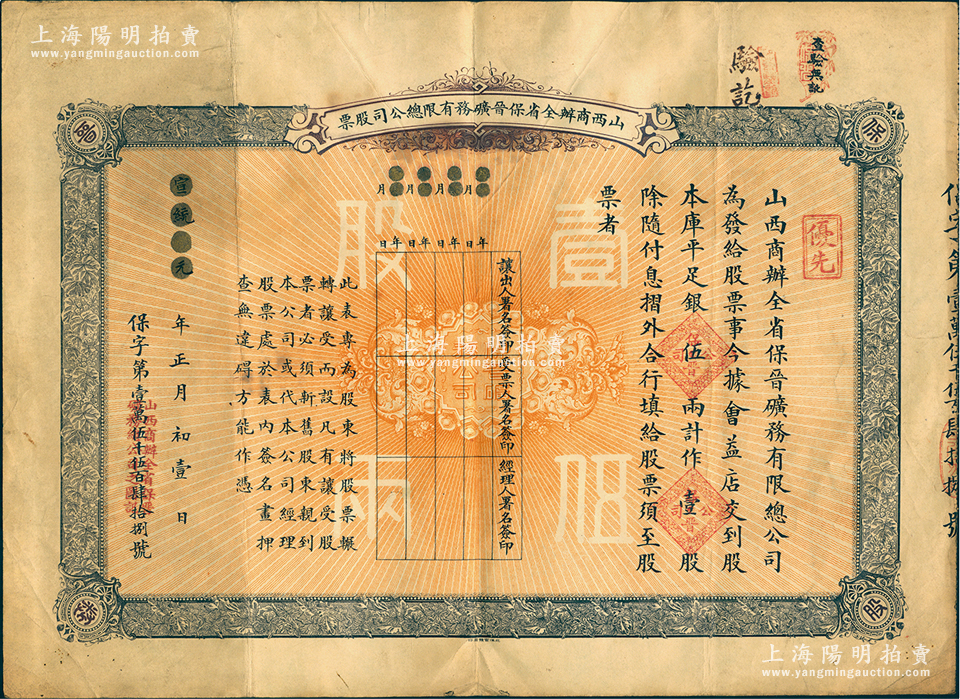 上海陽明拍賣
www.yangmingauction.com
上海陽明拍賣
www.yangmingauction.com
查驗無訛
驗訖
山西商辦全省保晉礦務有限總公司股票
保
晉
股
票
優先
山西商辦全省保晉礦務有限總公司
為發給股票事今據會益店交到股
本庫平足銀伍兩計作壹股
除隨付息摺外合行填給股票須至股
票者
壹股
伍兩
年月日
年月日
年月日
年月日
讓出人署名簽印
受票人署名簽印
經理人署名簽印
此表專為股東將股票輾
轉讓受而設凡有讓受股
票者必須斬舊股東親到
本公司或代本公司經理
股票處於表內簽名畫押
查無違碍方能作憑
宣統元年正月初壹日
保字第壹萬伍千伍百肆拾捌號
上海陽明拍賣
www.yangmingauction.com
上海陽明拍賣
www.yangmingauction.com
上海陽明拍賣
www.yangmingauction.com